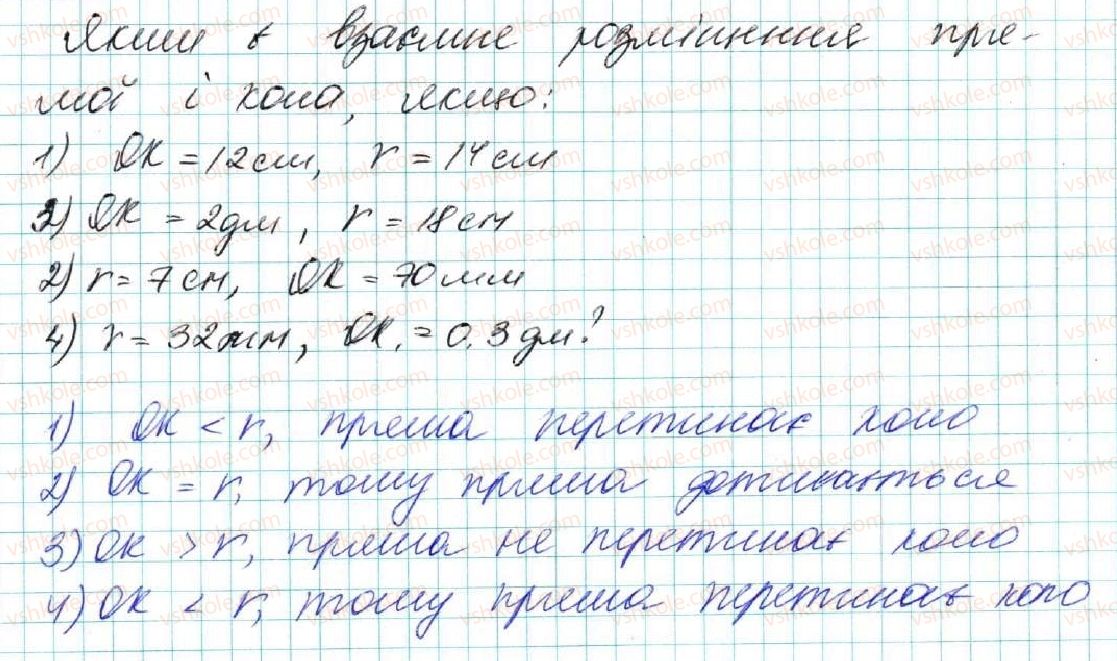 Яким є взаємне розміщення пря-
мої і кола, якщо:
1) OK = 12 см, r = 14 см
3) OK = 2 дм, r = 18 см
2) r = 7 см, OK = 70 мм
4) r = 32 мм, OK = 0,3 дм?
1) OK < r, пряма перетинає коло
2) OK = r, тому пряма дотикається
3) OK > r, пряма не перетинає коло
4) OK < r, тому пряма перетинає коло